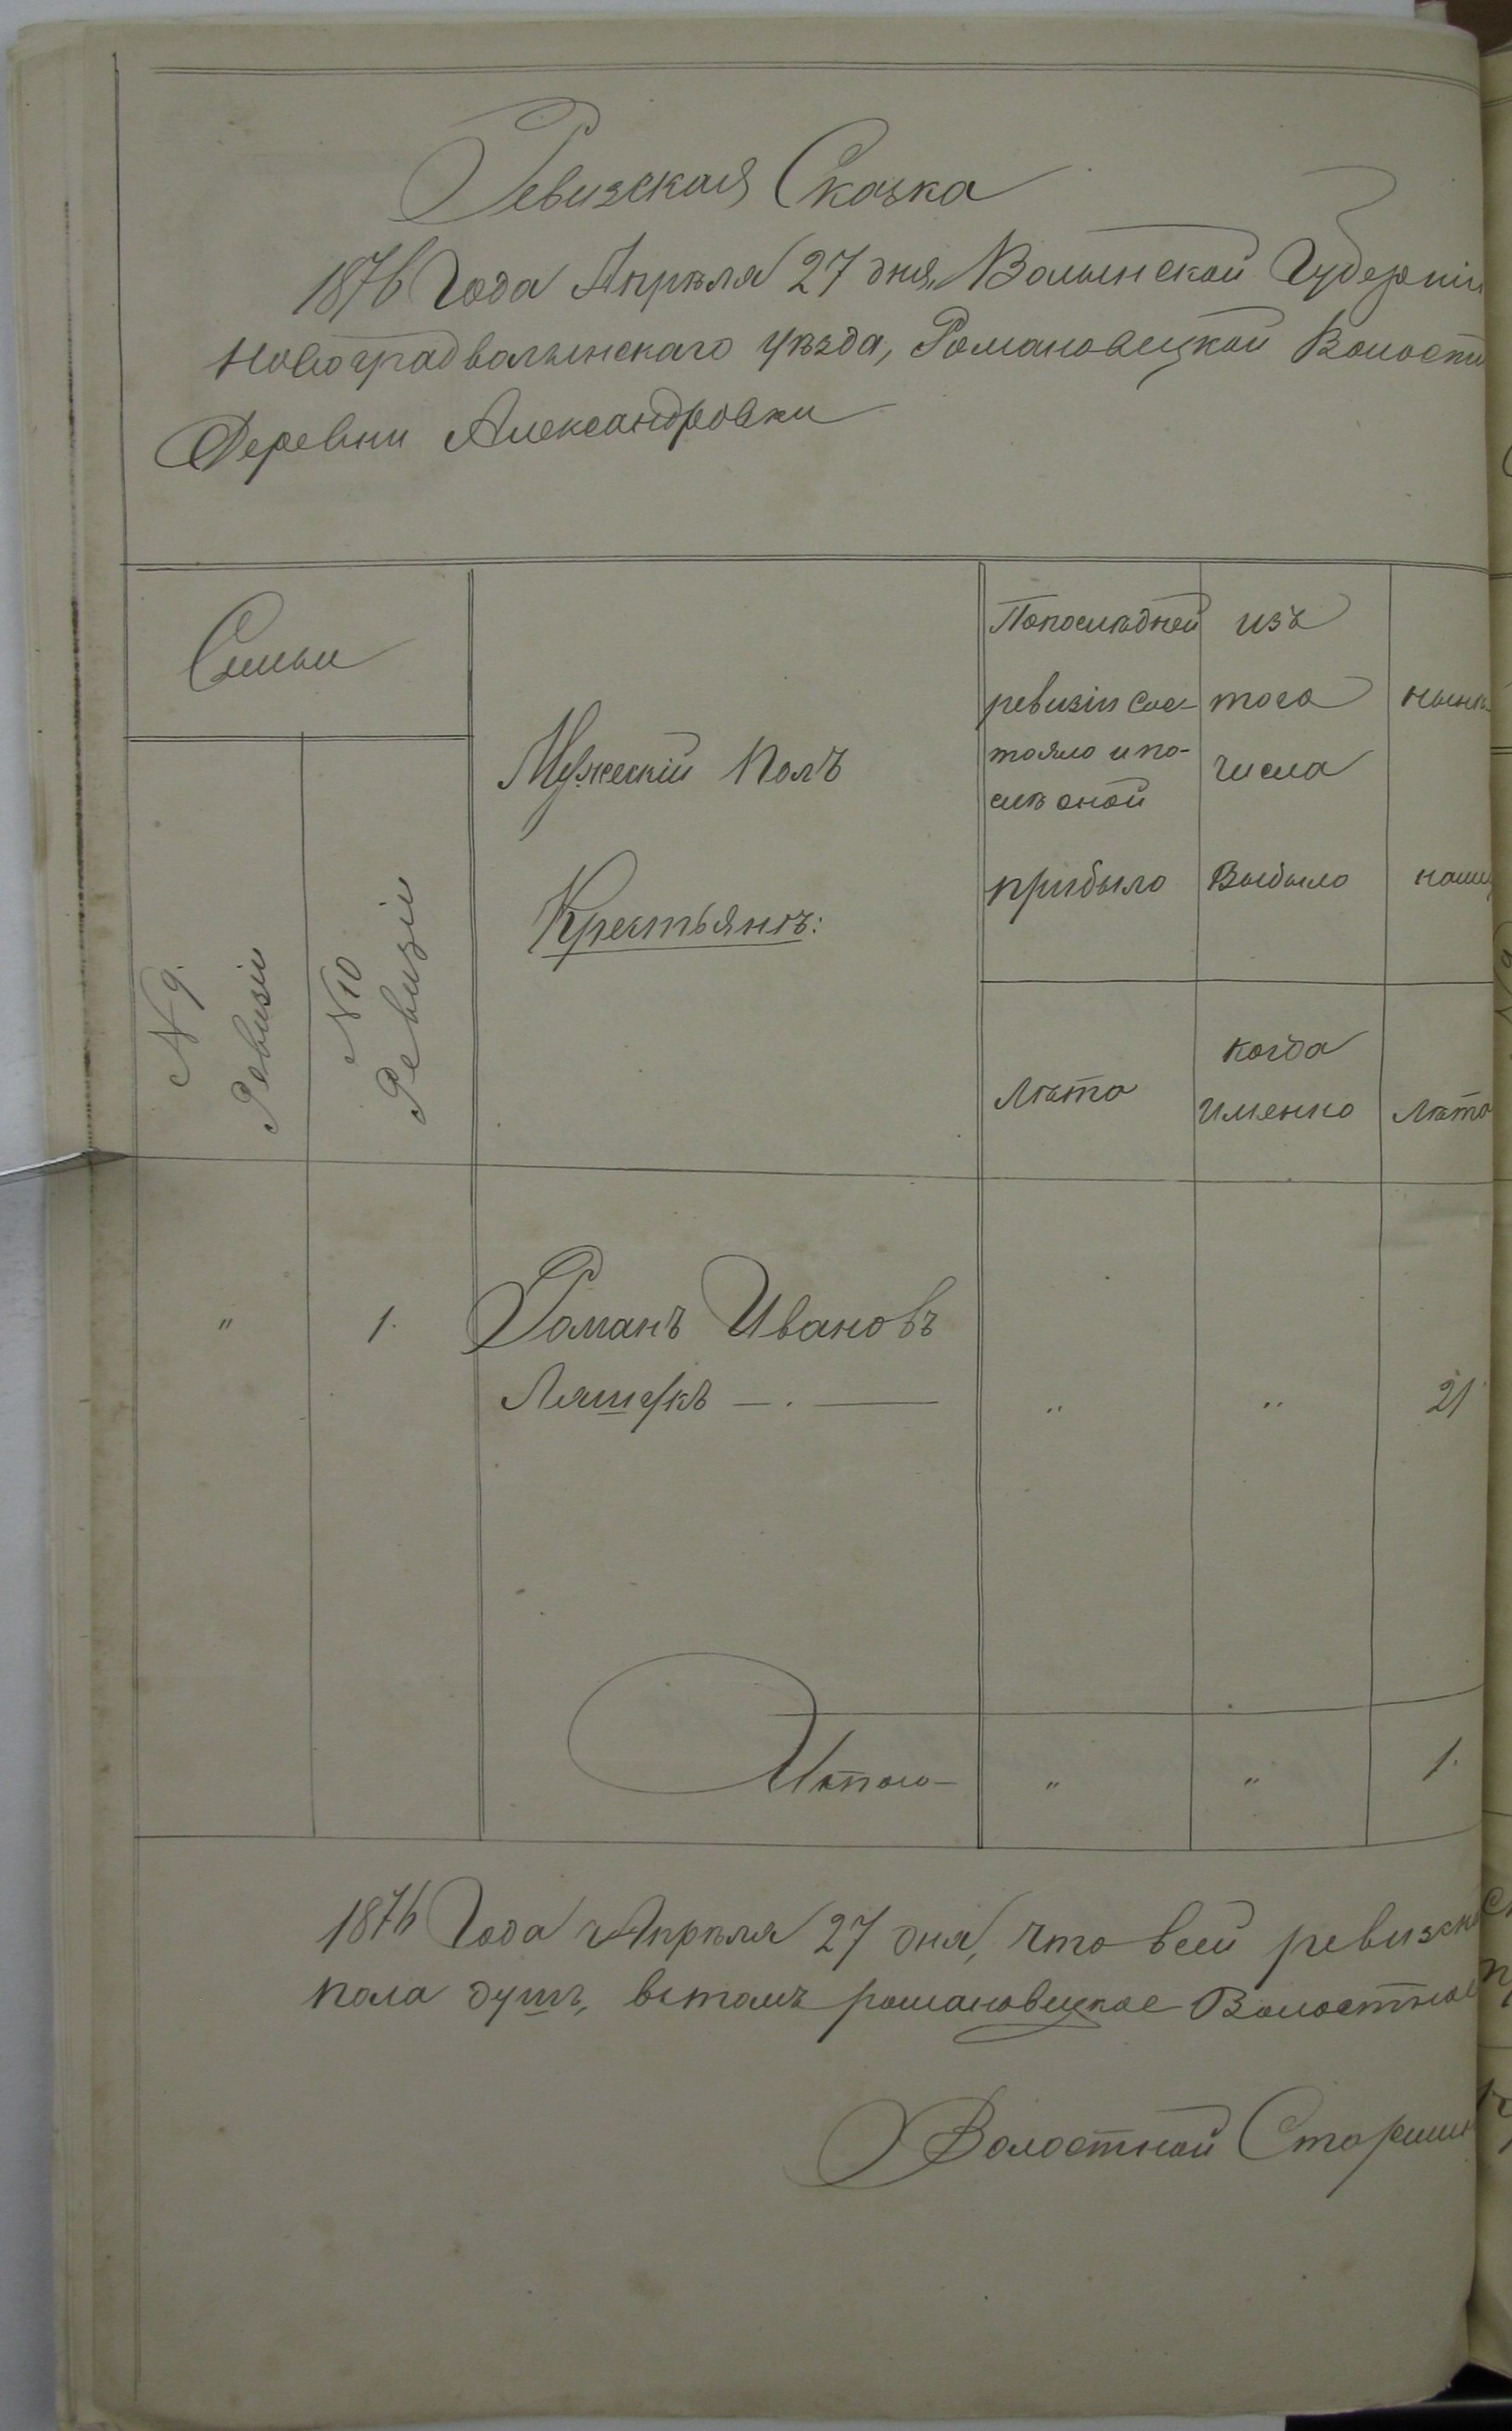 Ревизская Сказка
1876 Года Апрѣля 27 дня, Волынской Губерніи
Новоградволынскаго уѣзда, Романовецкой Волости
Деревни Александровки
Семьи
№ 9.
Ревизіи
№ 10
Ревизіи
Мужескій Полъ
Крестьянъ:
Попослѣдней
ревизіи Сос-
тояло и по-
слѣ оной
прибыло
Лѣта
изъ
того
числа
Выбыло
когда
именно
нынѣ
Лѣта
" 1. Романъ Ивановъ
Ляшукъ — . — " " 21
Итого — " " 1.
1876 Года Апрѣля 27 дня, что всей ревизск
пола душъ, вътомъ романовецкое Волостное
Волостной Старшин